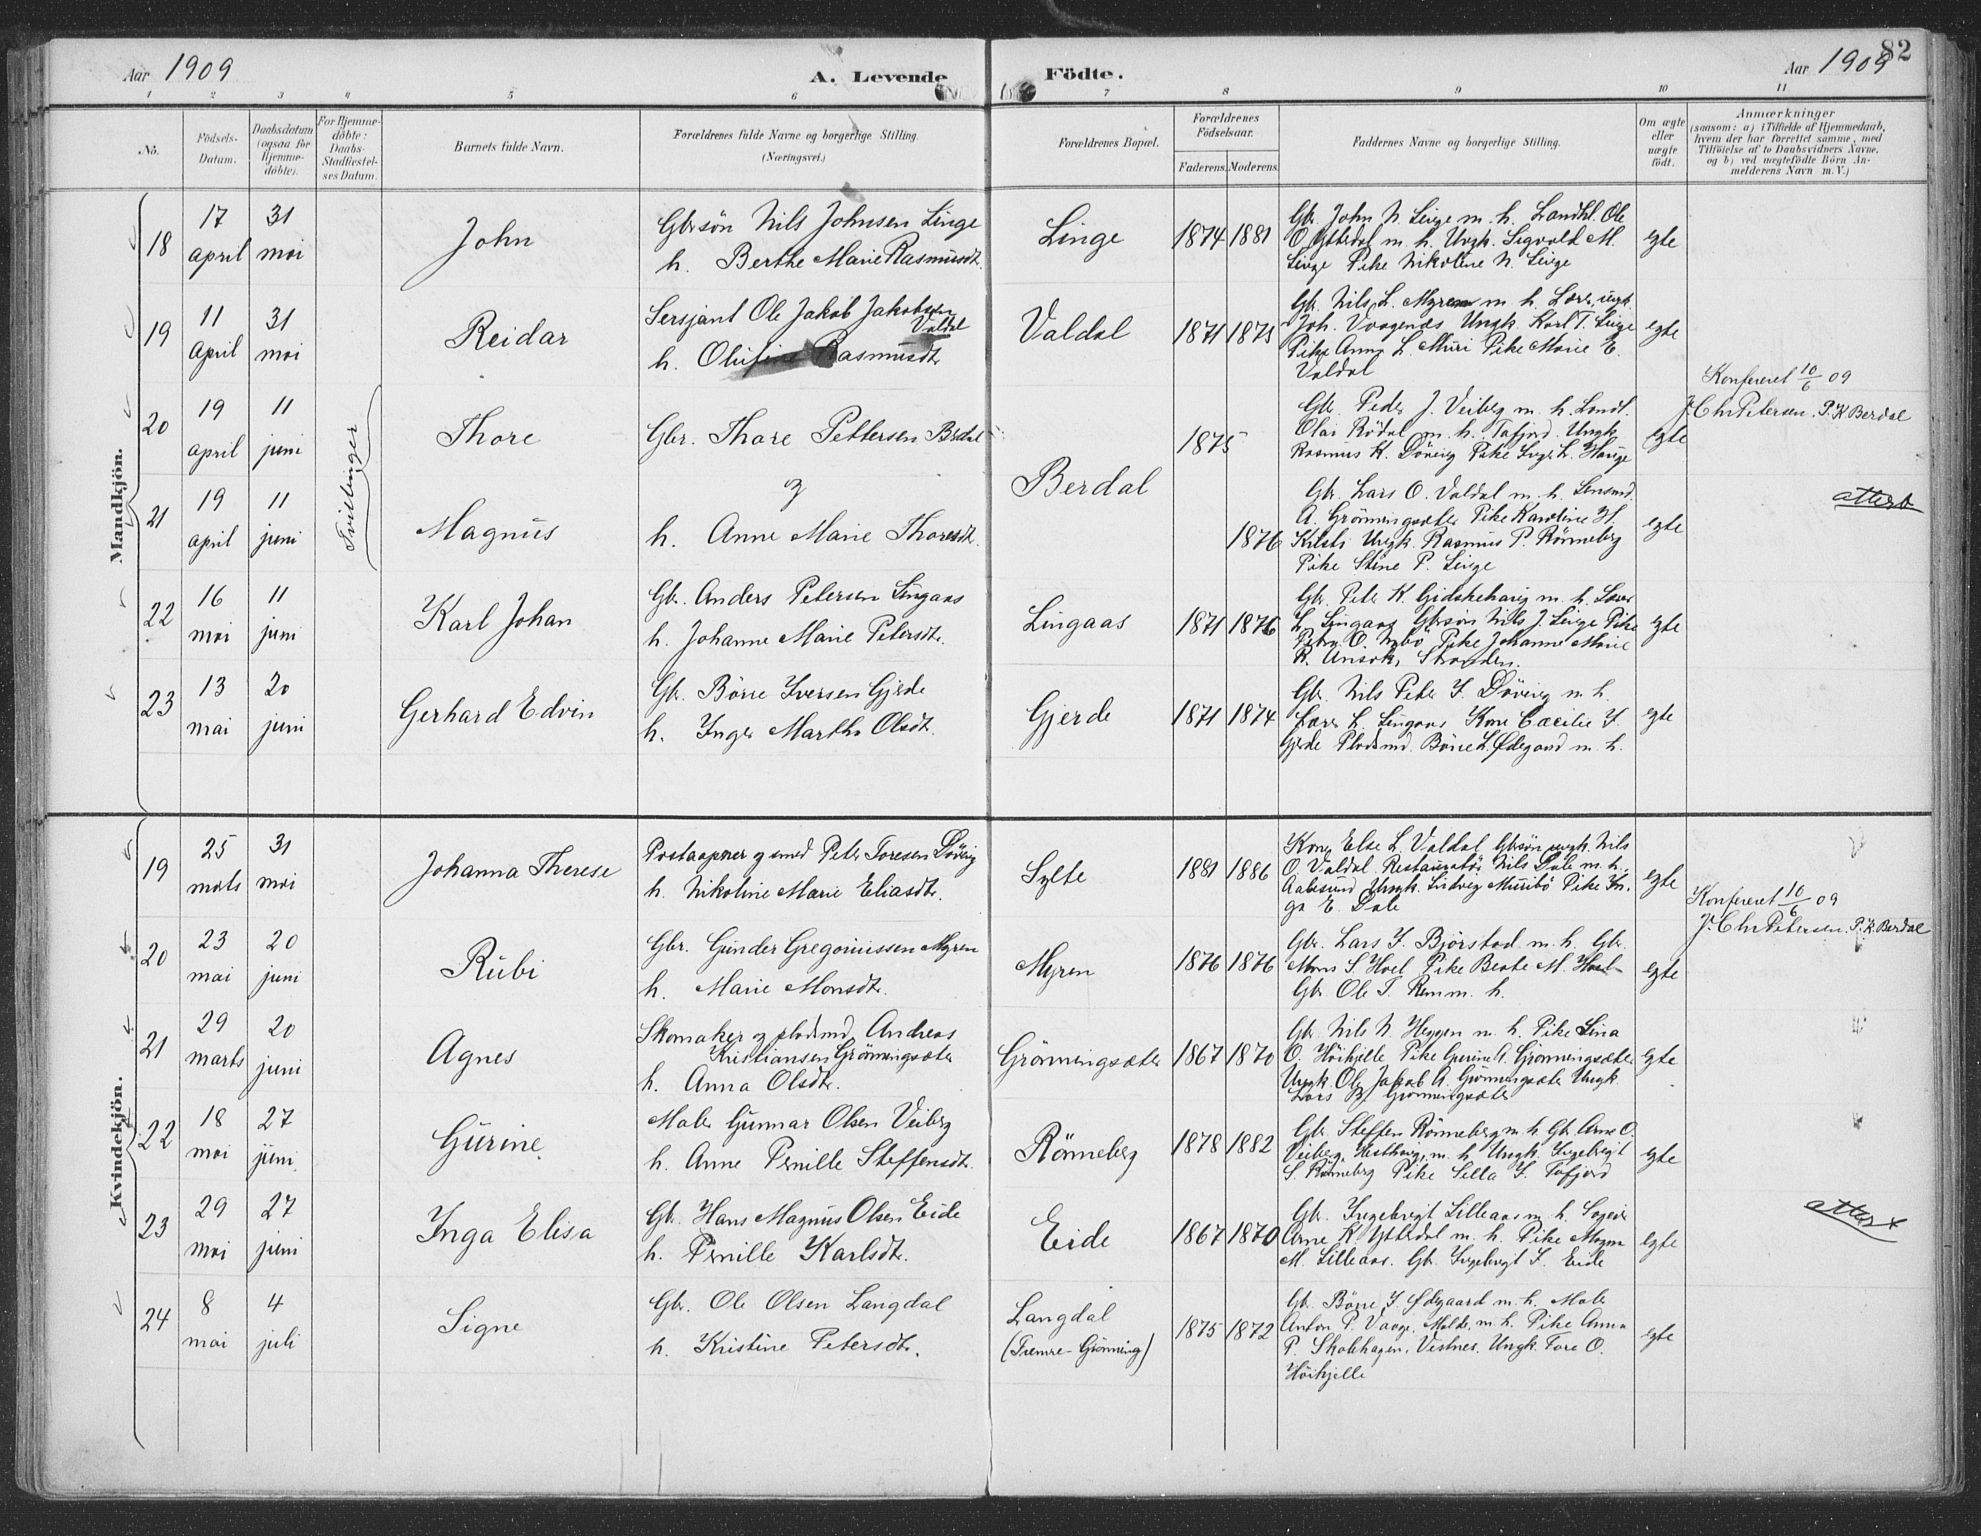 Aar 1909
A. Levende
Födte.
Aar 1909
82
1 2 3 4 5 6 7 8 9 10 11
No.
Födsels-
Datum.
Daabsdatum
(ogsaa for
Hjemme-
döbte).
For Hjemme-
döbte:
Daabs-
Stadfæstel-
ses Datum.
Barnets fulde Navn.
Forældrenes fulde Navne og borgerlige Stilling.
(Næringsvei.)
Forældrenes Bopæl.
Forældrenes
Födselsaar.
Faderens. Moderens.
Faddernes Navne og borgerlige Stilling.
Om ægte
eller
uægte
födt.
Anmærkninger
(saasom: a) i Tilfælde af Hjemmedaab,
hvem der har forrettet samme, med
Tilföielse af to Daabsvidners Navne,
og b) ved uægtefödte Börn An-
melderens Navn m. V.)
Mandkjön.
18
17
april
31
mai
John
Gbrsön Nils Johnsen Linge
h. Berthe Marie Rasmusdt.
Linge
1874 1881
Gbr. John N. Linge m. h. Landhl. Ole
O. Ytterdal m. h. Ungk. Sigvald M.
Linge Pike Nikoline N. Linge
egte
19
11
april
31
mai
Reidar
Sersjant Ole Jakob Jakobsen
Valdal
h. Olufine Rasmusdt.
Valdal
1871 1875
Gbr. Nils L. Myren m. h. Lærer, ungk.
Joh. Vaagenæs Ungk. Karl T. Linge
Pike Anna L. Muri Pike Marie E.
Valdal
egte
Konfereret 10/6 09
J. Chr Petersen. P. K. Berdal
20
19
april
11
juni
Tvillinger
Thore
Gbr. Thore Pettersen Berdal
Berdal
1875
Gbr. Peder J. Veiberg m. h. Landh.
Olai Rödal m. h. Tafjord Ungk.
Rasmus K. Döving Pike Inger L. Hauge
egte
21
19
april
11
juni
Magnus
og
h. Anne Marie Thoresdt.
1876
Gbr. Lars O. Valdal m. h. Lensmd.
A. Grönningsæter Pike Karoline H.
Kilsti Ungk. Rasmus P. Rönneberg
Pike Stine P. Linge
egte
attest
22
16
mai
11
juni
Karl Johan
Gbr. Anders Petersen Lingaas
h. Johanne Marie Petersdt.
Lingaas
1871 1876
Gbr. Peter K. Gidskehaug m. h. Lærer
L. Lingaas Gbrsön Nils J. Linge Pike
Petra O. Nybö Pike Johanne Marie
R. Ansok, Stranden.
egte
23
13
mai
20
juni
Gerhard Edvin
Gbr. Börre Iversen Gjerde
h. Inger Marthe Olsdt.
Gjerde
1871 1874
Gbr. Nils Peter I. Döving m. h.
Lærer L. Lingaas Kone Cæcilie I.
Gjerde Pladsmd. Börre L. Ødegaard m. h.
egte
Kvindekjön.
19
25
marts
31
mai
Johanna Therese
Postaapner og smed Peter Toresen Döving
h. Nikoline Marie Eliasdt.
Sylte
1881 1886
Kone Else L. Valdal Gbrsön ungk. Nils
O. Valdal Restauratör Nils Dale m. h.
Aalesund Ungk. Ludvig Muribö Pike In-
ga E. Dale
egte
Konfereret 10/6 09
J. Chr Petersen. P. K. Berdal
20
23
mai
20
juni
Rubi
Gbr. Gunder Gregoriussen Myren
h. Marie Monsdt.
Myren
1876 1876
Gbr. Lars I. Björstad m. h. Gbr.
Mons S. Hoel Pike Beate M. Hoel
Gbr. Ole T. Rem m. h.
egte
21
29
marts
20
juni
Agnes
Skomaker og pladsmd. Andreas
Kristiansen Grönningsæter
h. Anna Olsdtr.
Grönningsæter
1867 1870
Gbr. Nils N. Heggen m. h. Pike Lina
O. Höihjelle Pike Gurine A. Grönningsæter
Ungk. Ole Jakob A. Grönningsæter Ungk.
Lars B. Grönningsæter
egte
22
18
mai
27
juni
Gurine
Maler Gunnar Olsen Veiberg
h. Anne Pernille Steffensdt.
Rönneberg
1878 1882
Gbr. Steffen Rönneberg m. h. Gbr. Arne O.
Veiberg, m. h. Ungk. Ingebrigt
S. Rönneberg Pike Silla I. Tafjord
egte
23
29
mai
27
juni
Inga Elisa
Gbr. Hans Magnus Olsen Eide
h. Pernille Karlsdt.
Eide
1867 1870
Gbr. Ingebrigt Lilleaas m. h.
Arne K. Ytterdal m. h. Pike Magna
M. Lilleaas. Gbr. Ingebrigt I. Eide
egte
attest
24
8
mai
4
juli
Signe
Gbr. Ole Olsen Langdal
h. Kristine Petersdt.
Langdal
(Fremre-Grönning)
1875 1872
Gbr. Börre I. Ødegaard m. h. Maler
Anton P. Vaage, Molde, m. h. Pike Anna
P. Skolehagen, Vestnes. Ungk. Tore O.
Höihjelle
egte